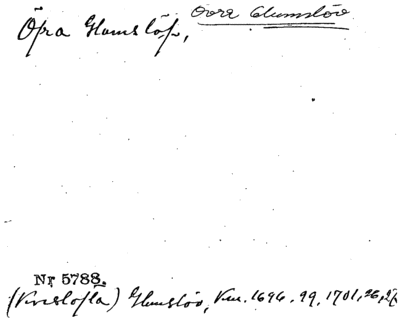 Öfra Glumslöf, Övre Glumslöv
Nr 5788.
(Virestofta) Glumslöv, Ven. 1694. 99, 1701, 26,